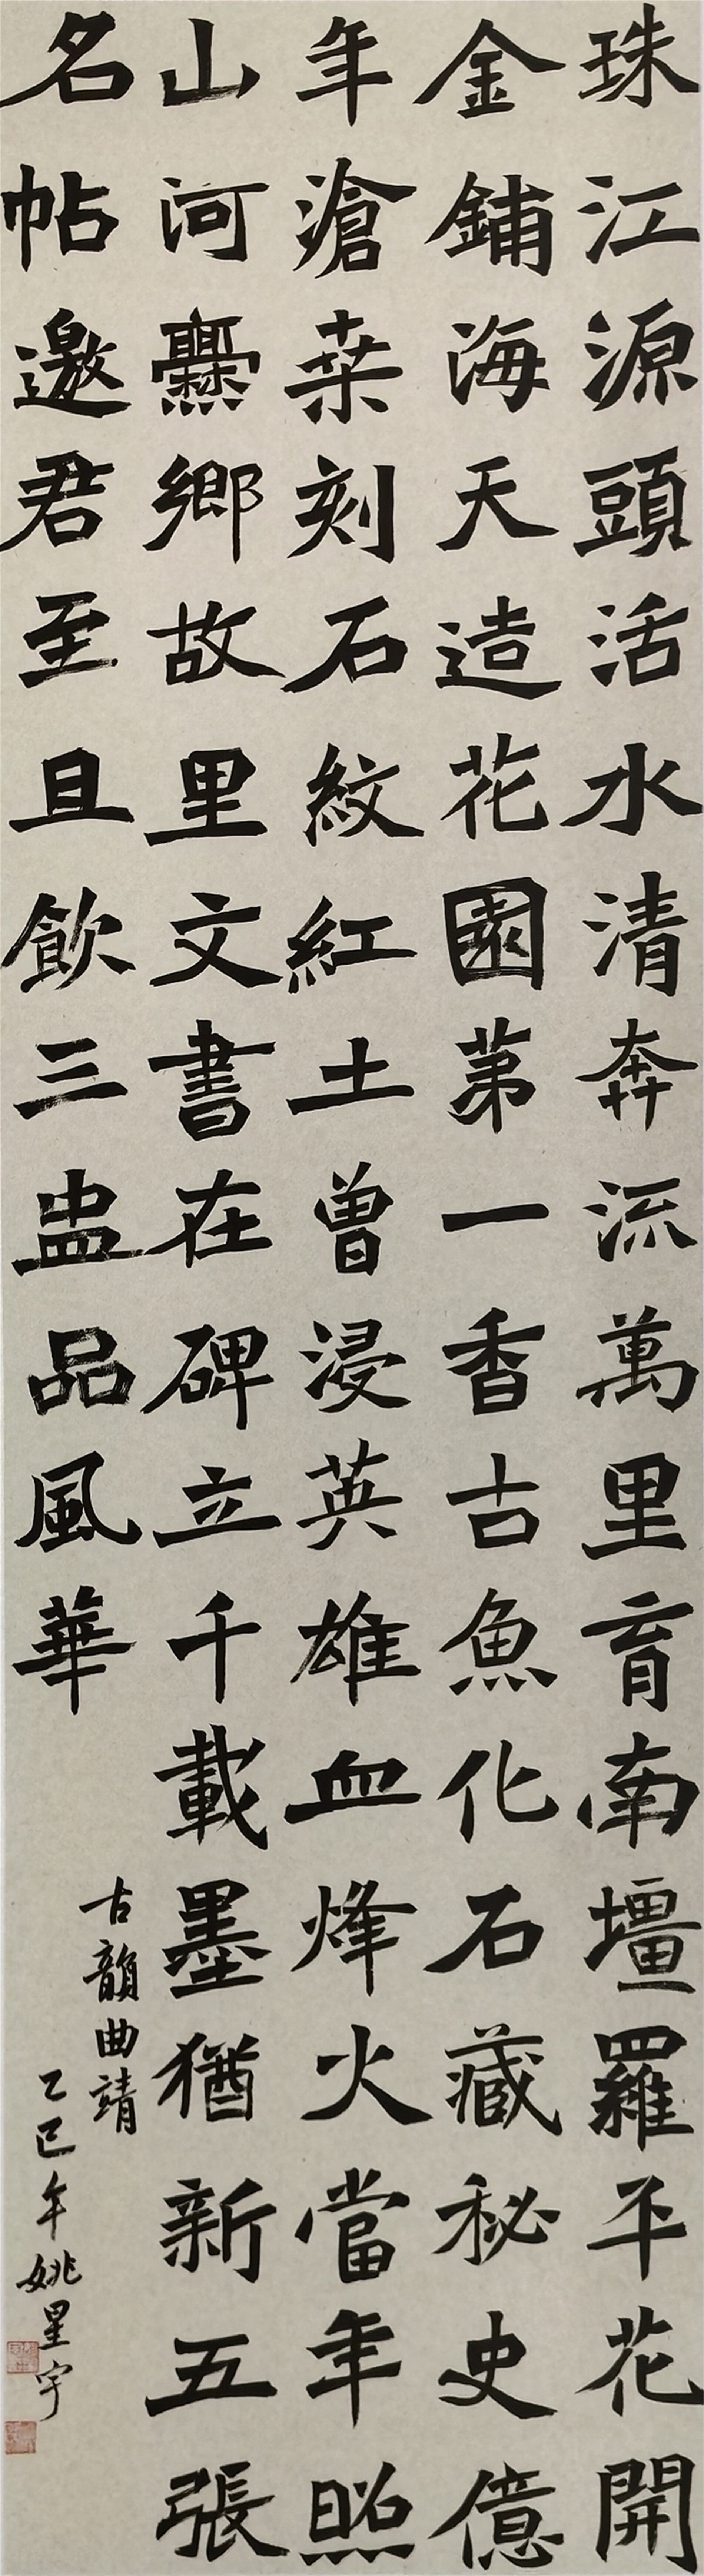 珠江源頭活水清奔流萬里育南壇羅平花開
金鋪海天造花園第一香古魚化石藏秘史億
年滄桑刻石紋紅土曾浸英雄血烽火當年照
山河爨鄉故里文書在碑立千載墨猶新五張
名帖邀君至且飲三盅品風華
古韻曲靖
乙巳年姚星宇